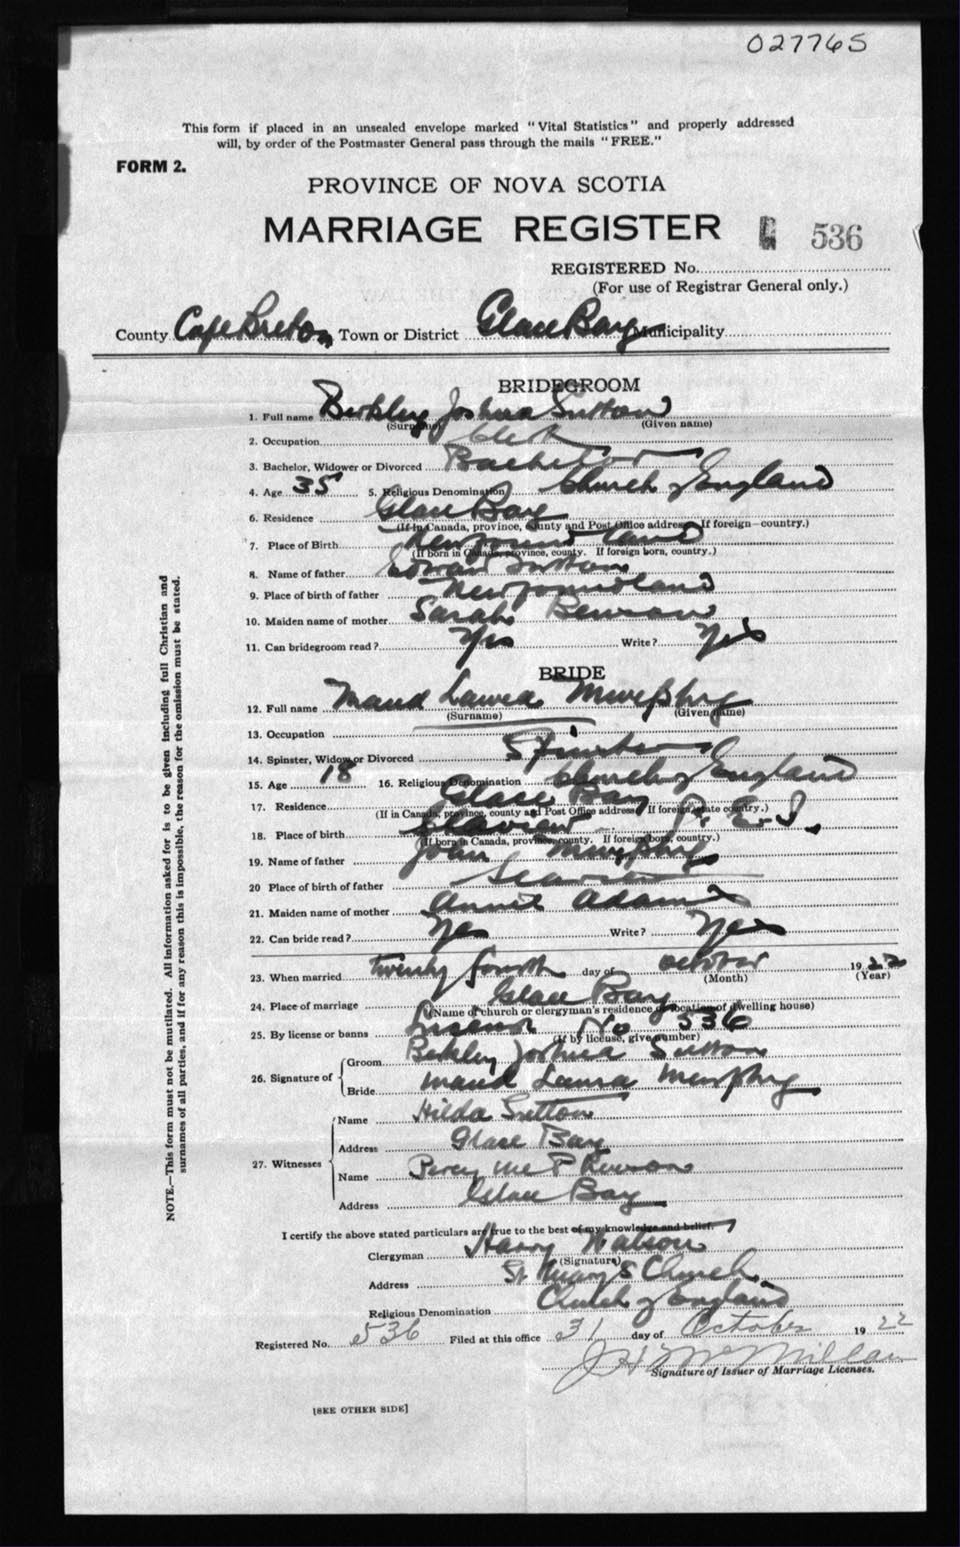 027765
This form if placed in an unsealed envelope marked "Vital Statistics" and properly addressed
will, by order of the Postmaster General pass through the mails "FREE."
FORM 2.
PROVINCE OF NOVA SCOTIA
MARRIAGE REGISTER 536
REGISTERED No.
(For use of Registrar General only.)
County Cape Breton Town or District Glace Bay Municipality
BRIDEGROOM
1. Full name Berkley Joshua Sutton
(Surname) (Given name)
2. Occupation Clerk
3. Bachelor, Widower or Divorced Bachelor
4. Age 35 5. Religious Denomination Church of England
6. Residence Glace Bay
(If in Canada, province, county and Post Office address. If foreign—country.)
7. Place of Birth Newfoundland
(If born in Canada, province, county. If foreign born, country.)
8. Name of father Edward Sutton
9. Place of birth of father Newfoundland
10. Maiden name of mother Sarah
11. Can bridegroom read? Yes Write? Yes
BRIDE
12. Full name Maud Laura Murphy
(Surname) (Given name)
13. Occupation
14. Spinster, Widow or Divorced Spinster
15. Age 18 16. Religious Denomination Church of England
17. Residence Glace Bay
(If in Canada, province, county and Post Office address. If foreign state country.)
18. Place of birth Seaview P. E. I.
(If born in Canada, province, county. If foreign born, country.)
19. Name of father John Murphy
20 Place of birth of father Seaview
21. Maiden name of mother Annie Adams
22. Can bride read? Yes Write? Yes
23. When married twenty fourth day of October 1922
(Month) (Year)
24. Place of marriage Glace Bay
(Name of church or clergyman's residence or location of dwelling house)
25. By license or banns No 536
(If by license, give number)
26. Signature of
Groom. Berkley Joshua Sutton
Bride Maud Laura Murphy
27. Witnesses
Name Hilda Sutton
Address Glace Bay
Name Percy McPherson
Address Glace Bay
I certify the above stated particulars are true to the best of my knowledge and belief.
Clergyman Harry Watson
(Signature)
Address St Mary's Church
Religious Denomination Church of England
Registered No. 536 Filed at this office 31 day of October 1922
J H McMillan
Signature of Issuer of Marriage Licenses.
[SEE OTHER SIDE]
NOTE.—This form must not be mutilated. All information asked for is to be given including full Christian and
surnames of all parties, and if for any reason this is impossible, the reason for the omission must be stated.